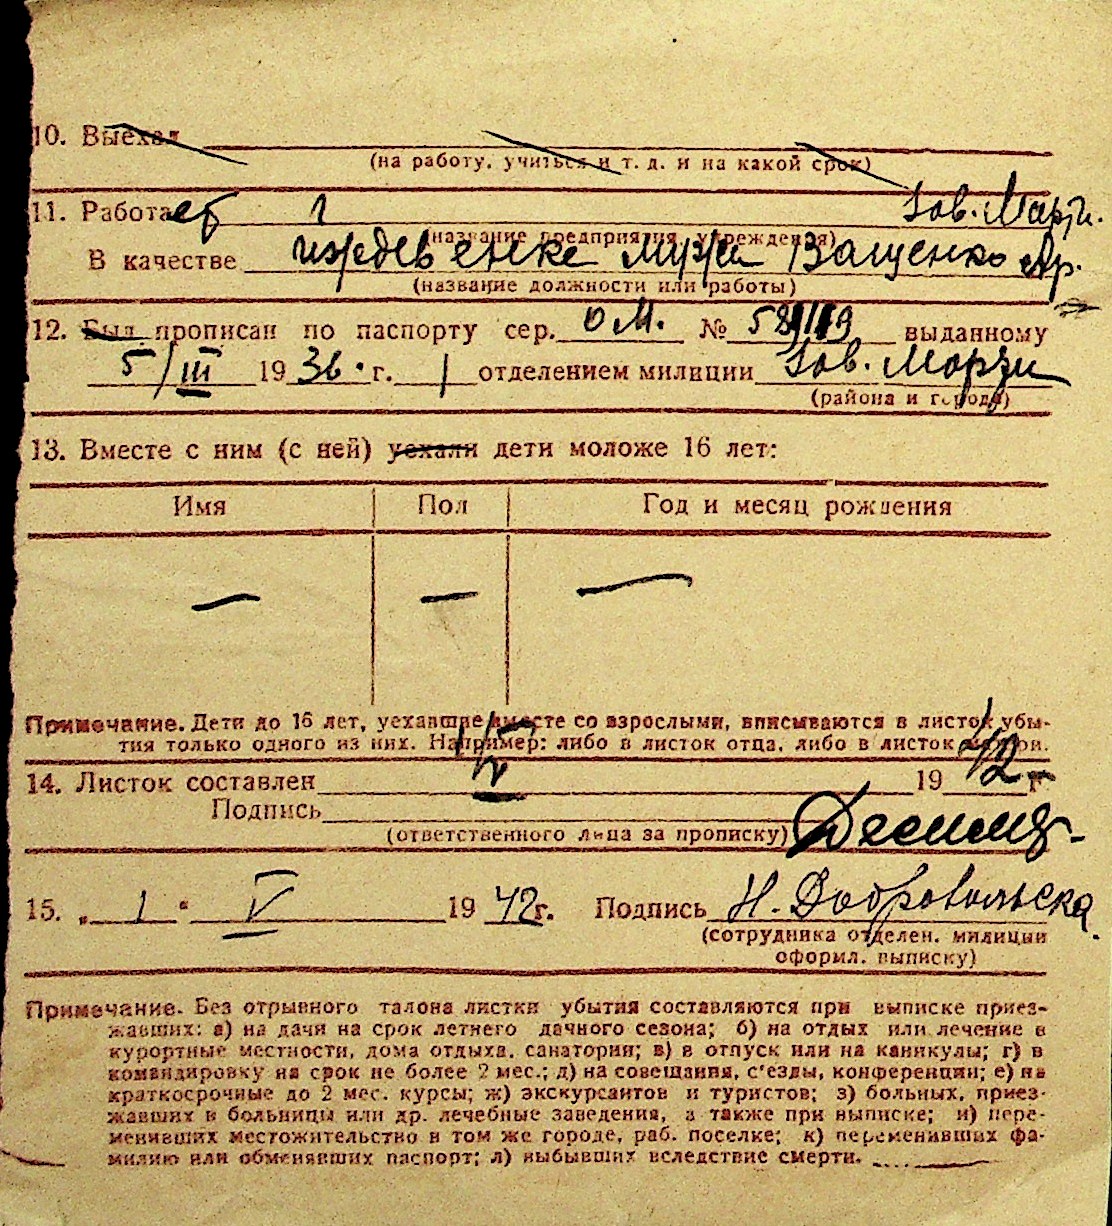 10. Выехал
(на работу, учиться и т. д. и на какой срок)
11. Работает
(название предприятия, учреждения)
В качестве иждевенке мужа Ващенко
(название должности или работы)
12. Был прописан по паспорту сер. ОМ. № выданному
5/III 1936. г. 1 отделением милиции
(района и города)
13. Вместе с ним (с ней) уехали дети моложе 16 лет:
Имя Пол Год и месяц рождения
— — —
Примечание. Дети до 16 лет, уехавшие вместе со взрослыми, вписываются в листок убы-
тия только одного из них. Например: либо в листок отца, либо в листок матери.
14. Листок составлен 1/V 1942 г
Подпись
(ответственного лица за прописку)
15. „ 1 " V 1942г. Подпись Н. Добровольска
(сотрудника отделен. милиции
оформл. выписку)
Примечание. Без отрывного талона листки убытия составляются при выписке приез-
жавших: а) на дачи на срок летнего дачного сезона; б) на отдых или лечение в
курортные местности, дома отдыха, санатории; в) в отпуск или на каникулы; г) в
командировку на срок не более 2 мес.; д) на совещания, с'езды, конференции; е) на
краткосрочные до 2 мес. курсы; ж) экскурсантов и туристов; з) больных, приез-
жавших в больницы или др. лечебные заведения, а также при выписке; и) пере-
менивших местожительство в том же городе, раб. поселке; к) переменивших фа-
милию или обменявших паспорт; л) выбывших вследствие смерти.